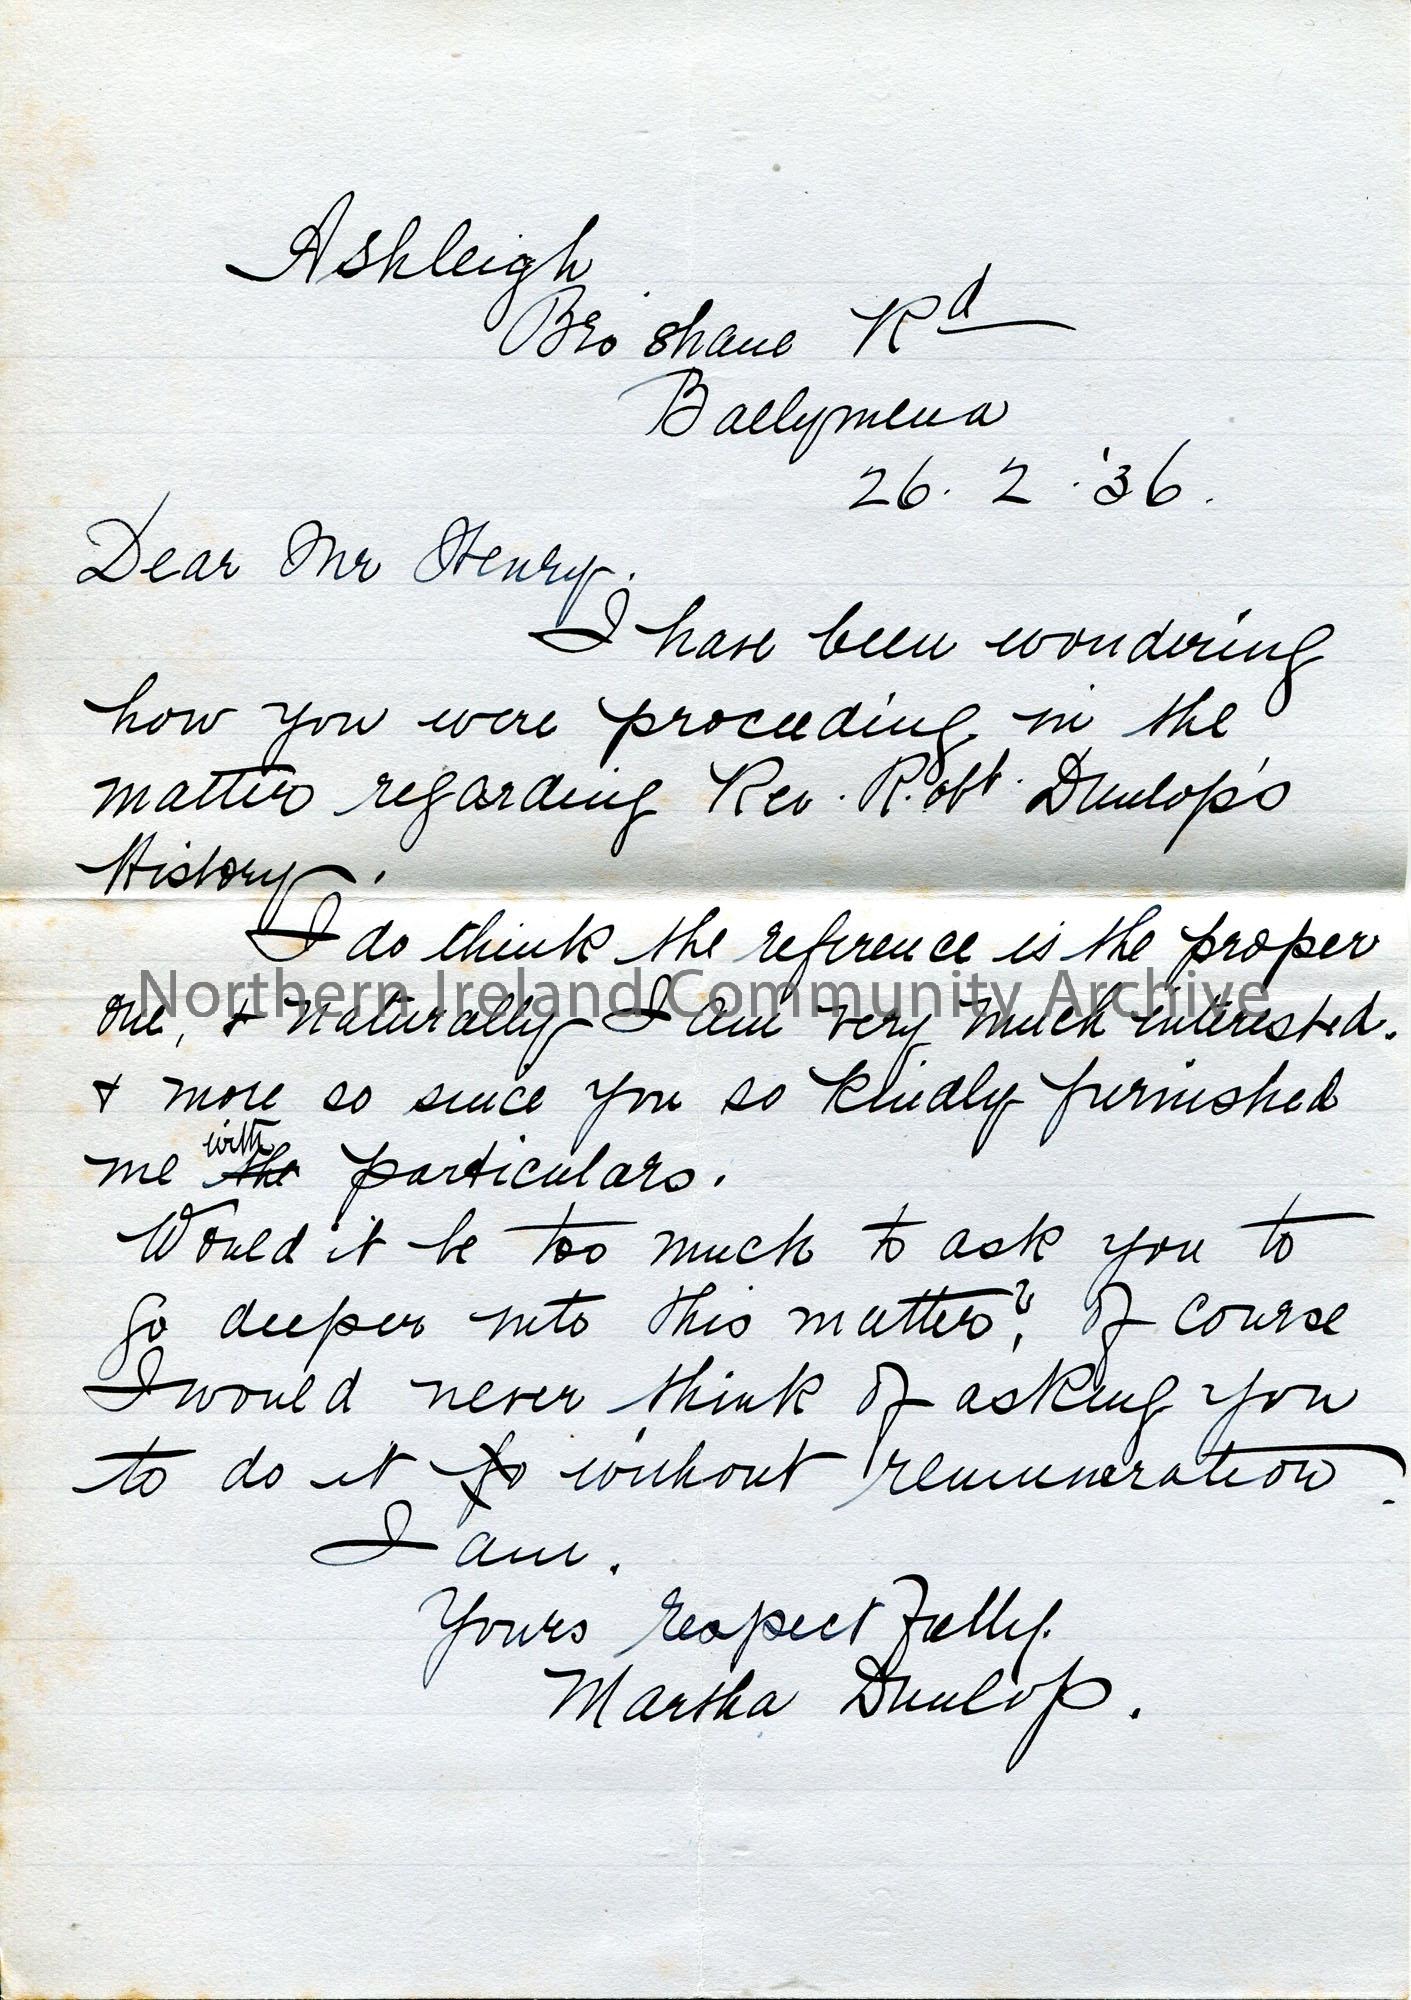 Ashleigh
Broʼshane Rd
Ballymena
26. 2. '36.
Dear Mr Henry.
I have been wondering
how you were proceeding in the
matter regarding Rev. Robt. Dunlop's
History.
I do think the reference is the proper
Northern Ireland Community Archive
one, & naturally I am very much interested.
& more so since you so kindly furnished
with
me the particulars.
Would it be too much to ask you to
go deeper into this matter? Of course
I would never think of asking you
to do it without remuneration.
I am.
Yours respectfully.
Martha Dunlop.